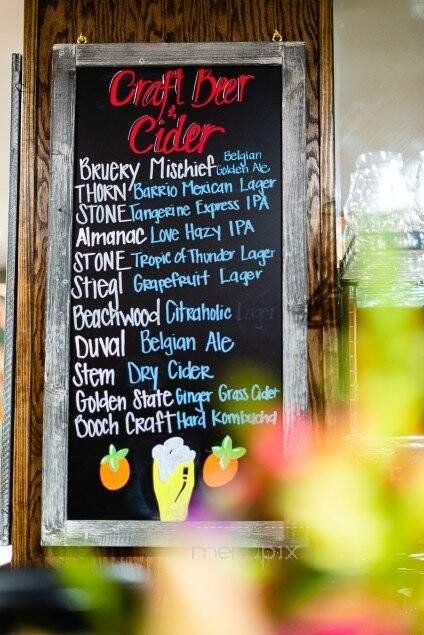 Craft Beer
&
Cider
Bruery Mischief Belgian Golden Ale
THORN Barrio Mexican Lager
STONE Tangerine Express IPA
Almanac Love Hazy IPA
STONE Tropic of Thunder Lager
Stiegl Grapefruit Lager
Beachwood Citraholic Lager
Duval Belgian Ale
Stem Dry Cider
Golden State Ginger Grass Cider
Booch Craft Hard Kombucha
menupix